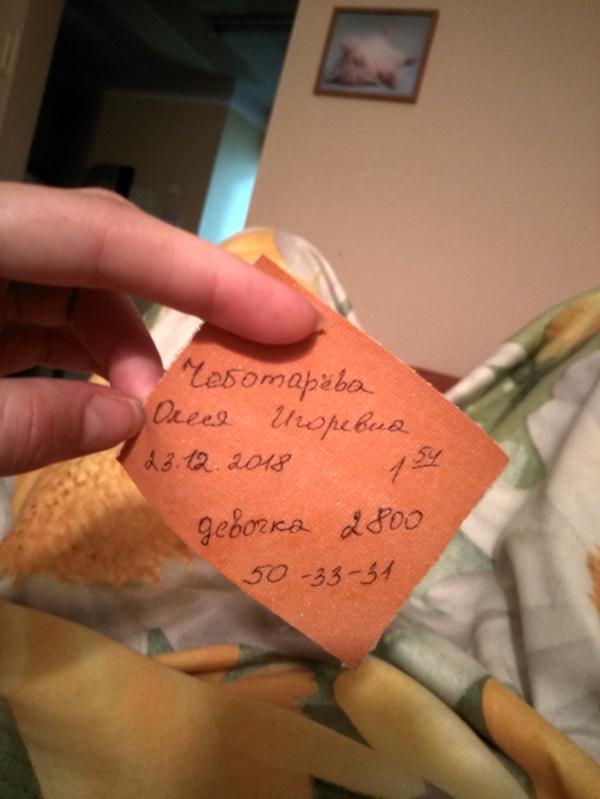 Чеботарёва
Олеся Игоревна
23.12.2018 1 54
девочка 2800
50-33-31